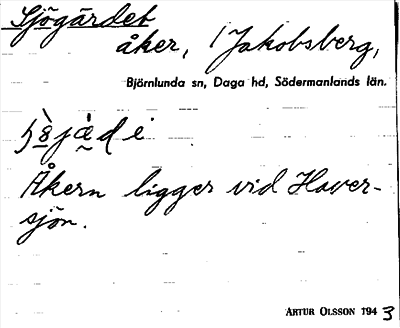 Sjögärdet
åker, / Jakobsberg,
Björnlunda sn, Daga hd, Södermanlands län.
Åkern ligger vid Haver-
sjön.
ARTUR OLSSON 1943